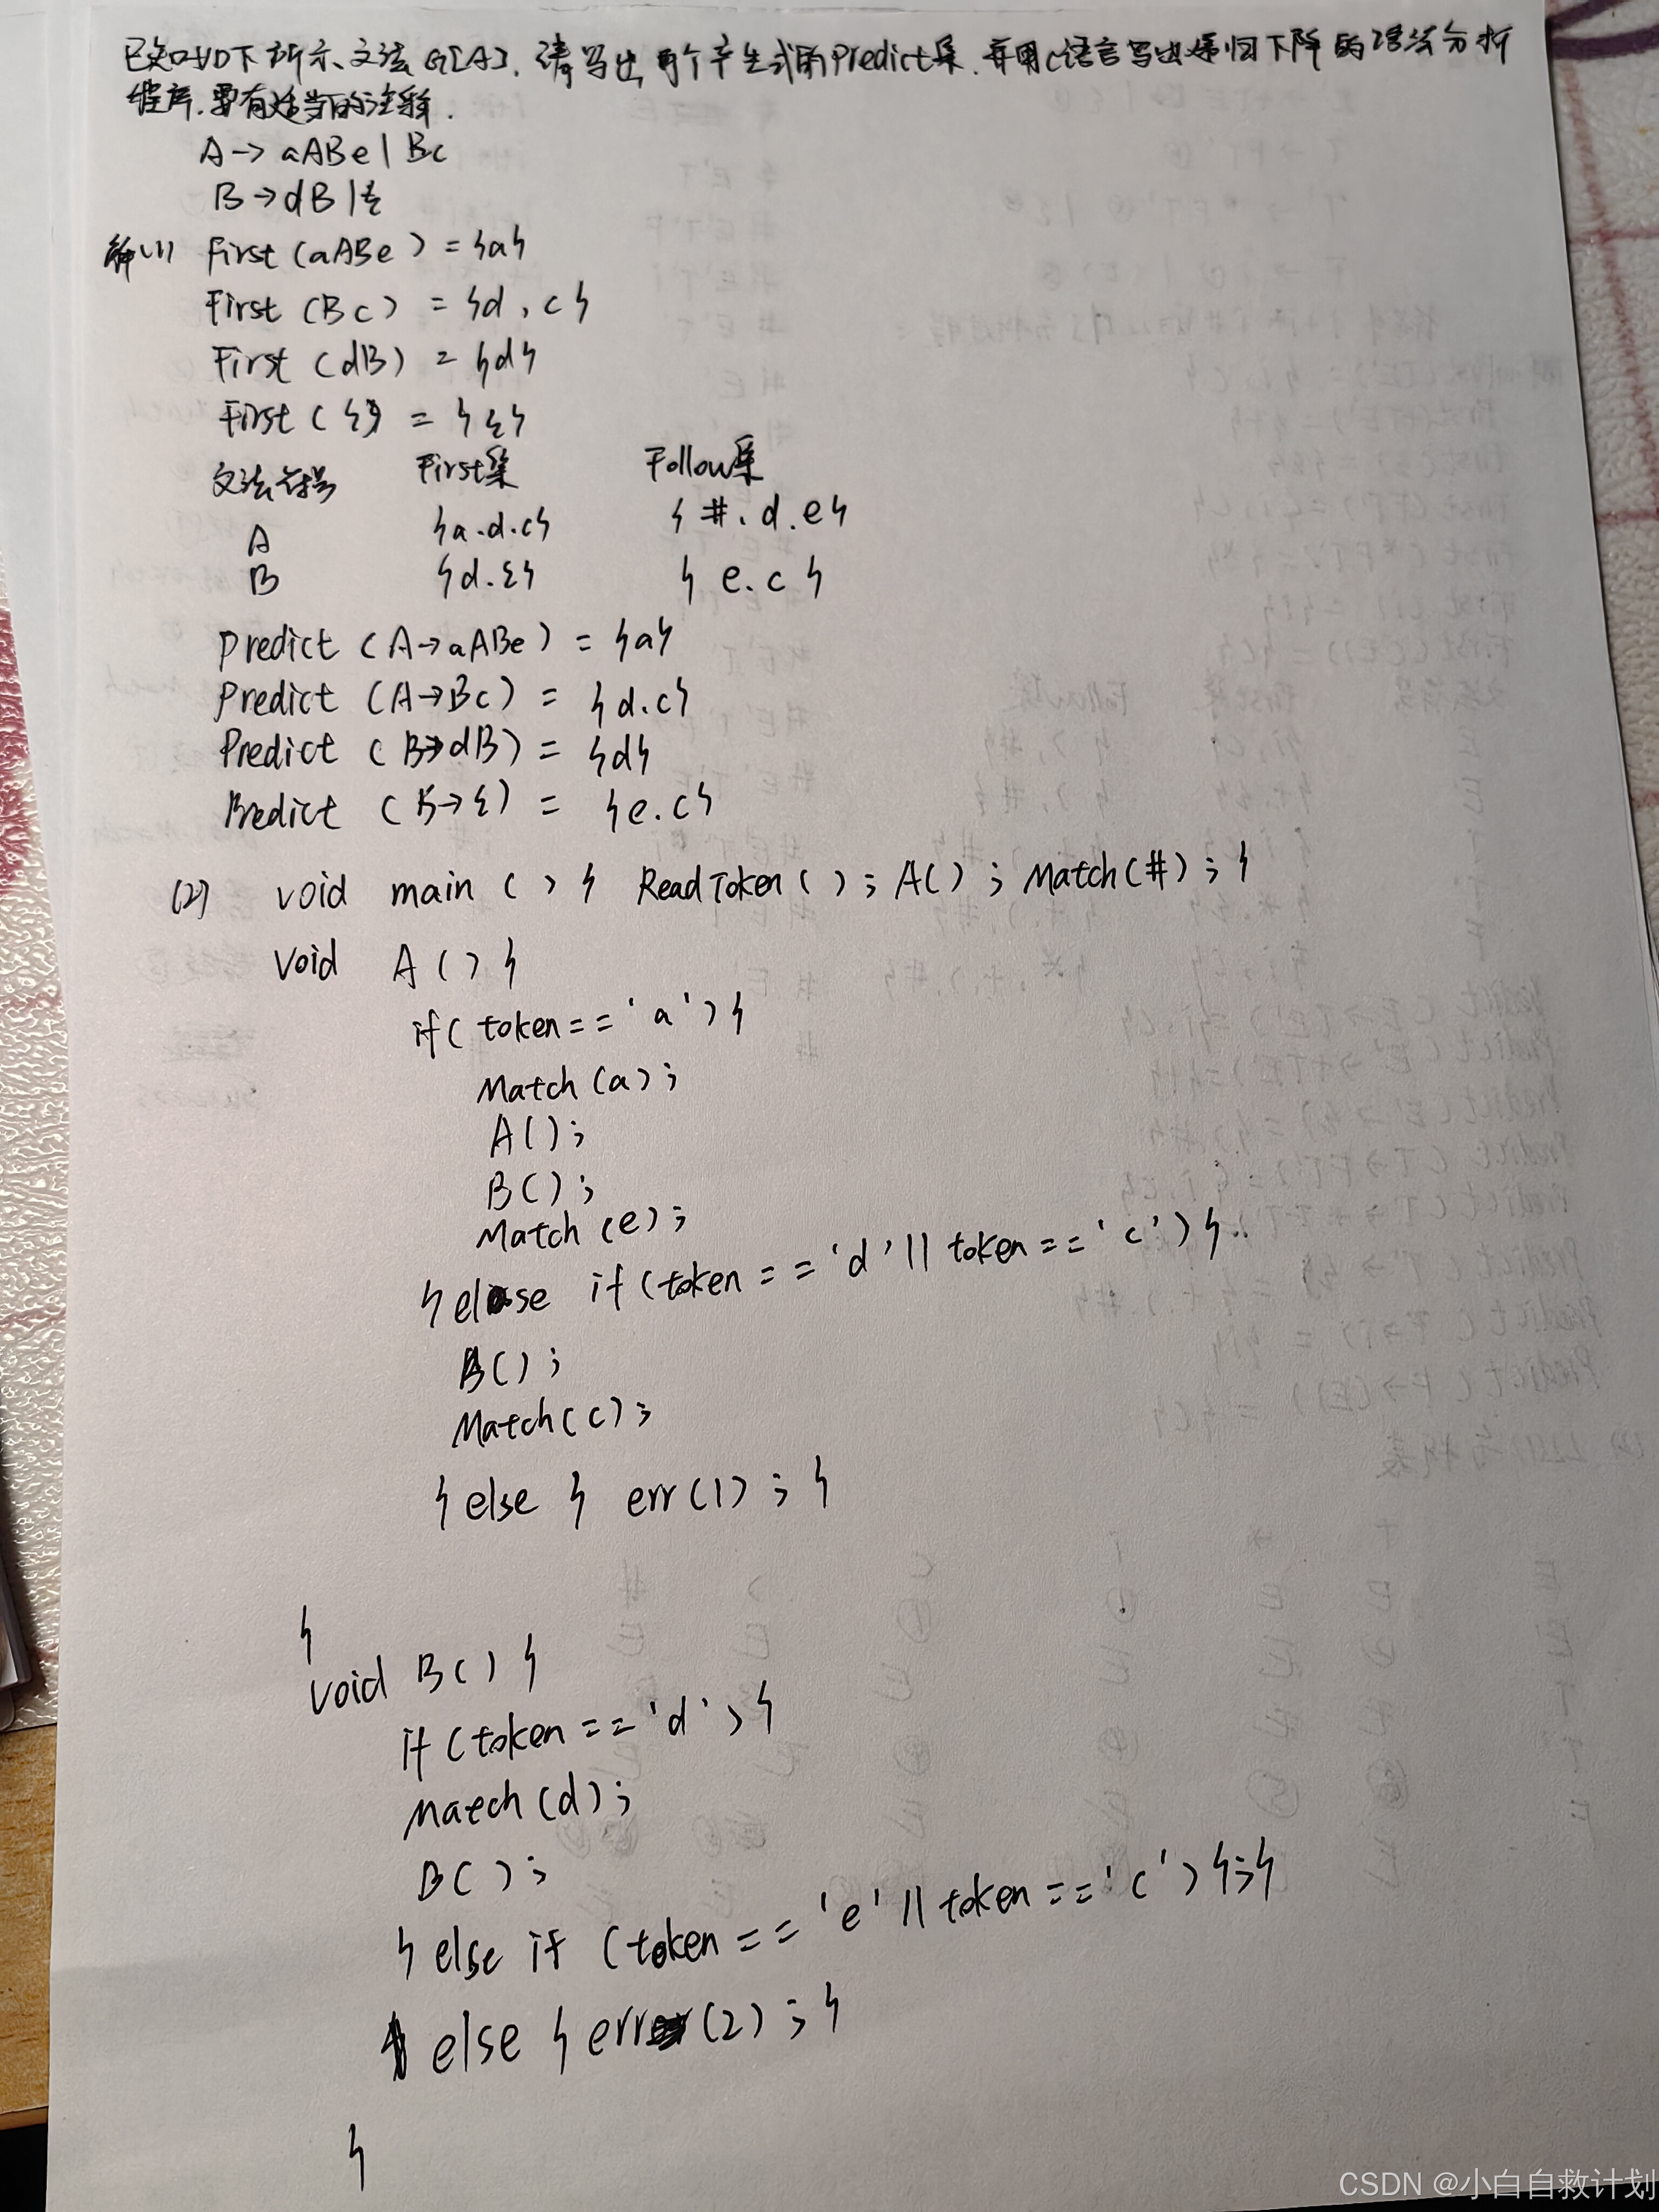 已知如下所示文法G[A]，请写出每个产生式的Predict集，并用c语言写出递归下降的语法分析
程序，要有适当的注释.
A→aABe|Bc
B→dB|ε
解(1) First(aABe)={a}
First(Bc)={d,c}
First(dB)={d}
First(ε)={ε}
文法符号 First集 Follow集
A {a.d.c} {#.d.e}
B {d.ε} {e.c}
Predict(A→aABe)={a}
Predict(A→Bc)={d.c}
Predict(B→dB)={d}
Predict(B→ε)={e.c}
(2) void main(){ ReadToken(); A(); Match(#);}
void A(){
if(token=='a'){
Match(a);
A();
B();
Match(e);
}else if(token=='d'||token=='c'){
B();
Match(c);
}else{ err(1);}
}
void B(){
if(token=='d'){
Match(d);
B();
}else if(token=='e'||token=='c'){;}
else{err(2);}
}
CSDN @小白自救计划